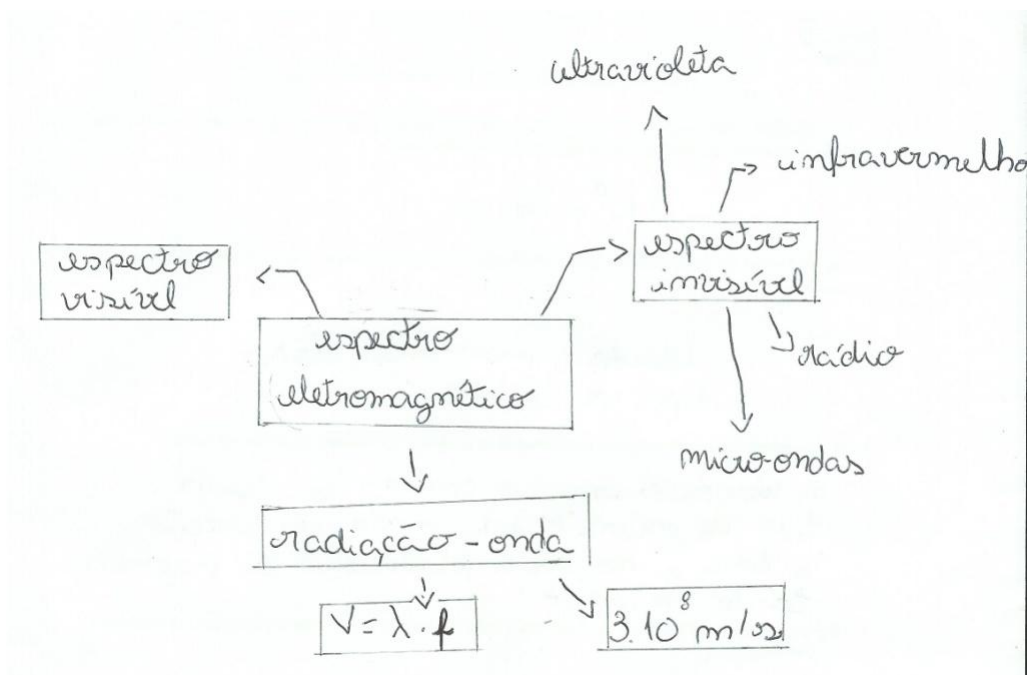 ultravioleta
infravermelho
espectro
visível
espectro
invisível
espectro
eletromagnético
rádio
micro-ondas
radiação - onda
V = λ . f
3.10⁸ m/s